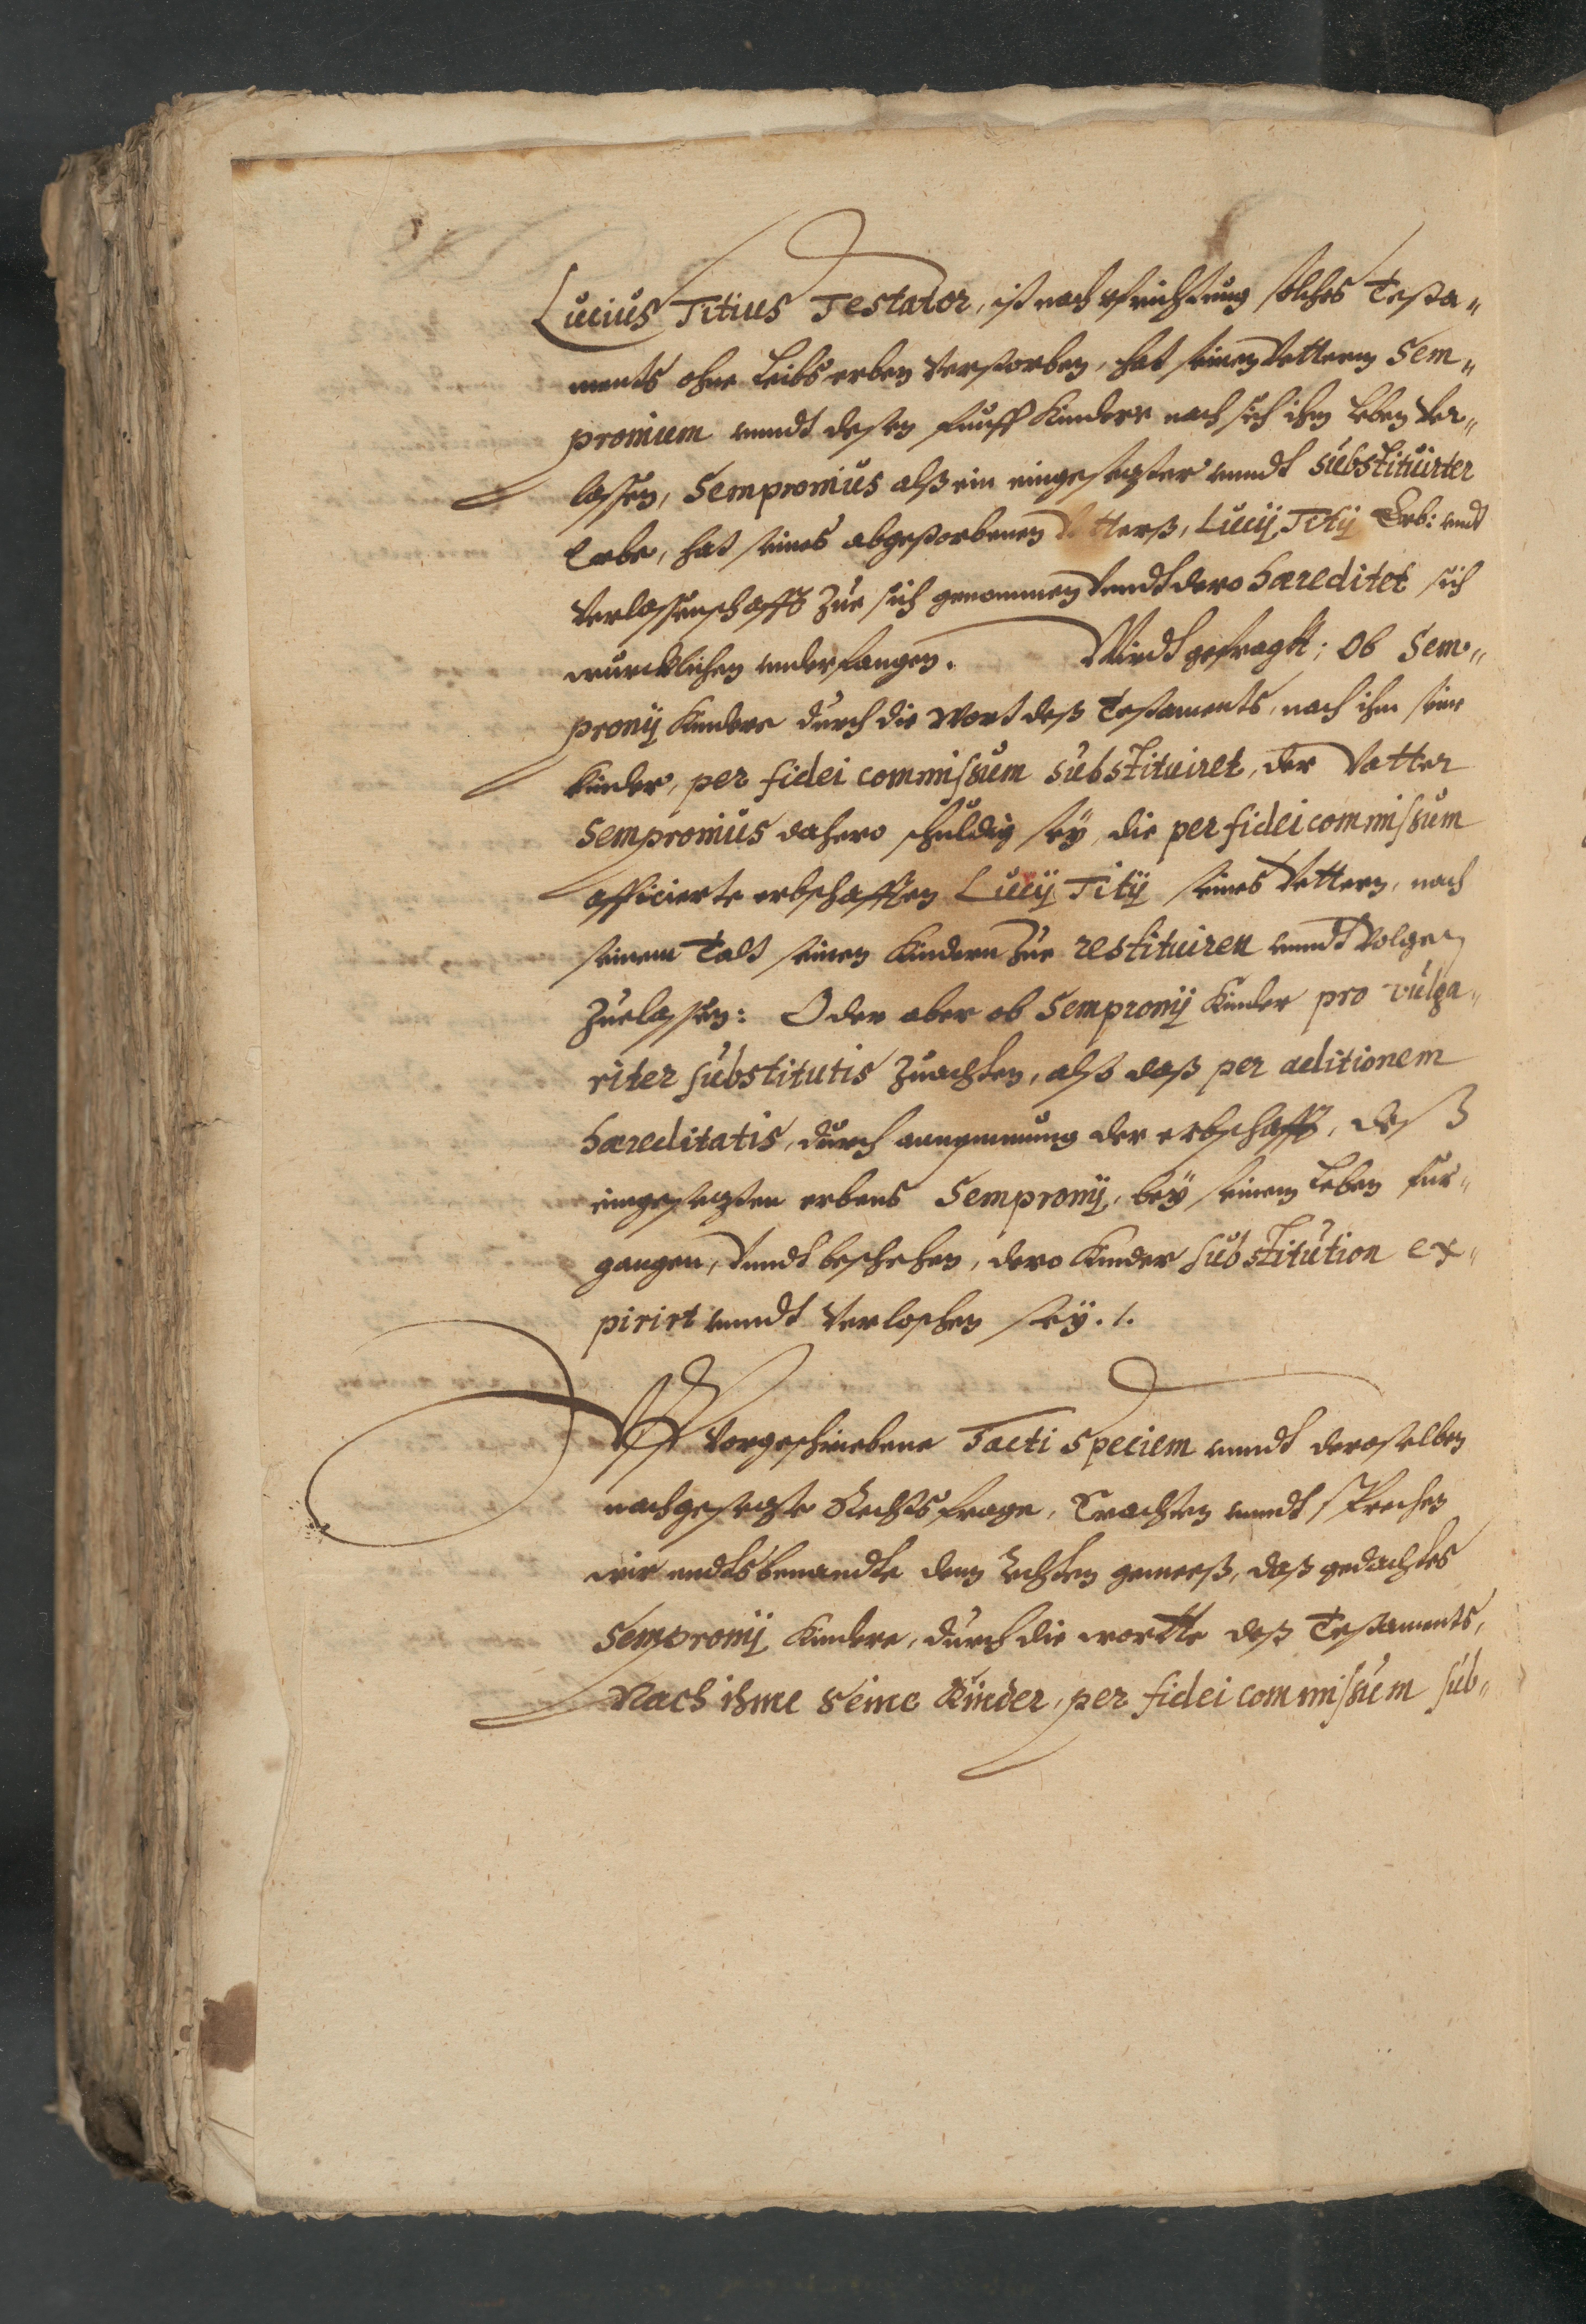 Lucius Titius Testator, ist nach vfrichtung solches Testa„
ments ohne Leibs erben verstorben, hat seinen Vettern Sem„
pronium vnndt dessen fünff Kindere nach sich ihm Leben ver„
lassen, Sempronius alß ein eingesezter vnndt substituirter
Erbe, hat seines abgestorbenen Vetterß, Lucij Titij Erb: vndt
Verlassenschafft zue sich genommen vnndt dero haereditet sich
würcklichen vnderfangen. Wirdt gefragtt; Ob Sem„
pronij Kindere durch die Wort deß Testaments, nach ihm seine
Kinder, per fidei commissum substituiret, der Vatter
Sempronius dahero schuldig seÿ, die per fidei commissum
afficierte erbschafften Lucij Titij seines Vettern, nach
seinem Todt seinen Kindern zue restituiren vnndt volgen
zuelassen: Oder aber ob Sempronij Kinder pro vulga„
riter substitutis zuachten, alß daß per aditionem
haereditatis, durch annemmung der erbschafft, deß
eingesezten erbens Sempronij, beÿ seinem Leben für„
gangen, vnndt beschehen, dero Kinder substitution ex„
pirirt vnndt verloschen seÿ. /.
Vff vorgeschriebene Facti Speciem vnndt deroselben
nachgesezte Rechtsfrage, Erachten vnndt sprechen
wir endtsbenandte den Rechten gemeeß, daß gedachtes
Sempronij Kindere, durch die wortte deß Testaments,
Nach ihme seine Kinder, per fidei commissum sub„